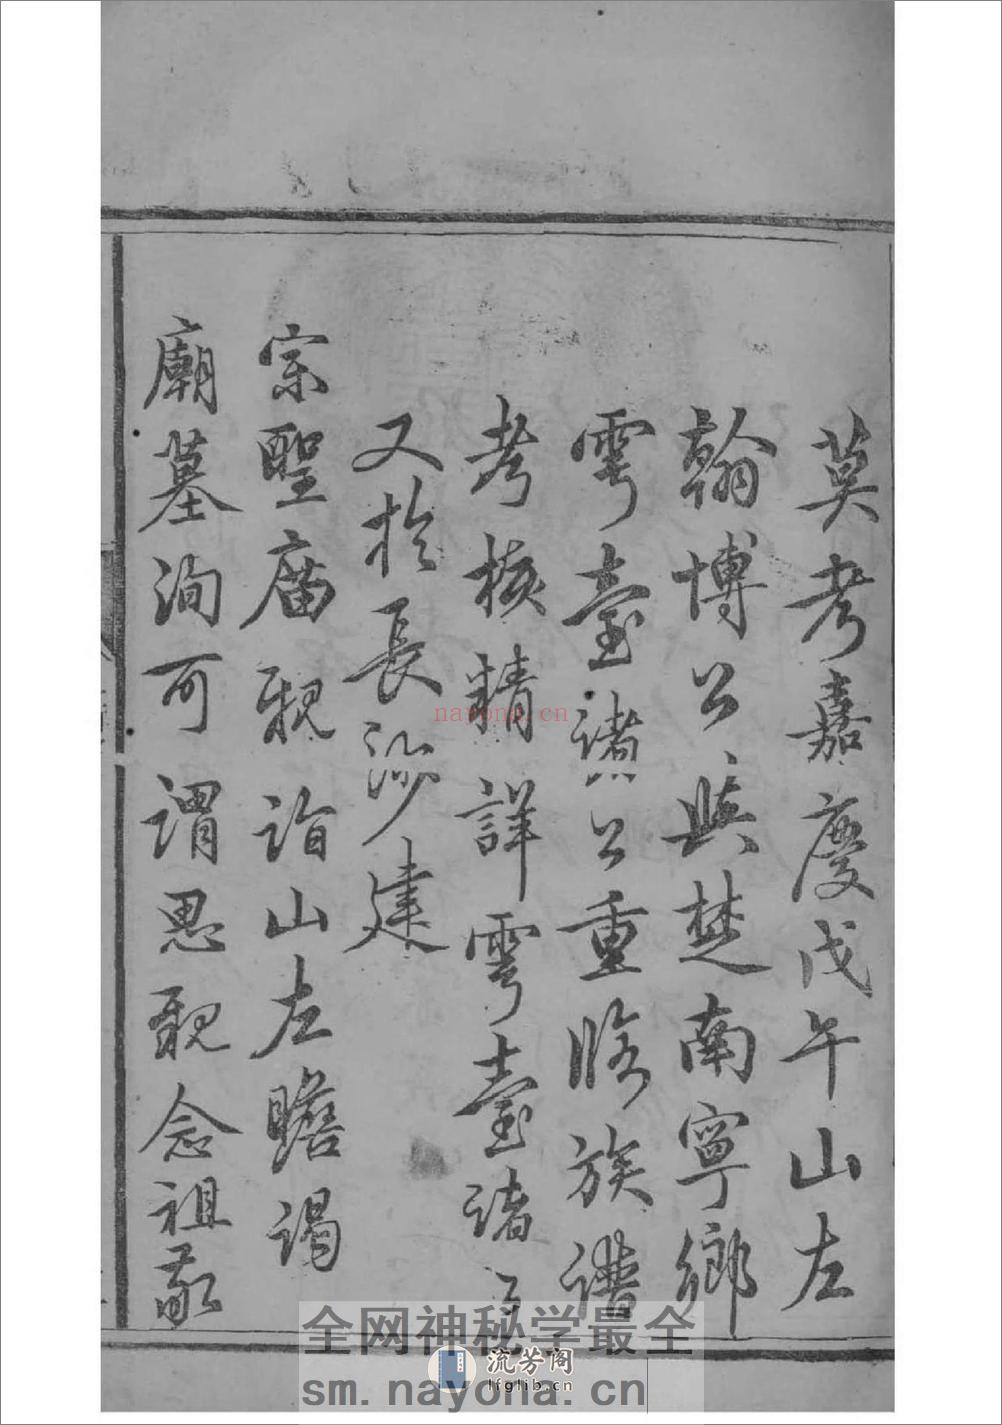 莫考嘉慶戊午山左
翰博公與楚南寧鄉
雩臺諸公重修族譜
考核精詳雩臺諸
又於長沙建
宗聖庿親詣山左瞻謁
廟墓洵可謂思親念祖
nayona.cn
全网神秘学最全
流芳阁
lfglib.cn
sm.nayona.cn